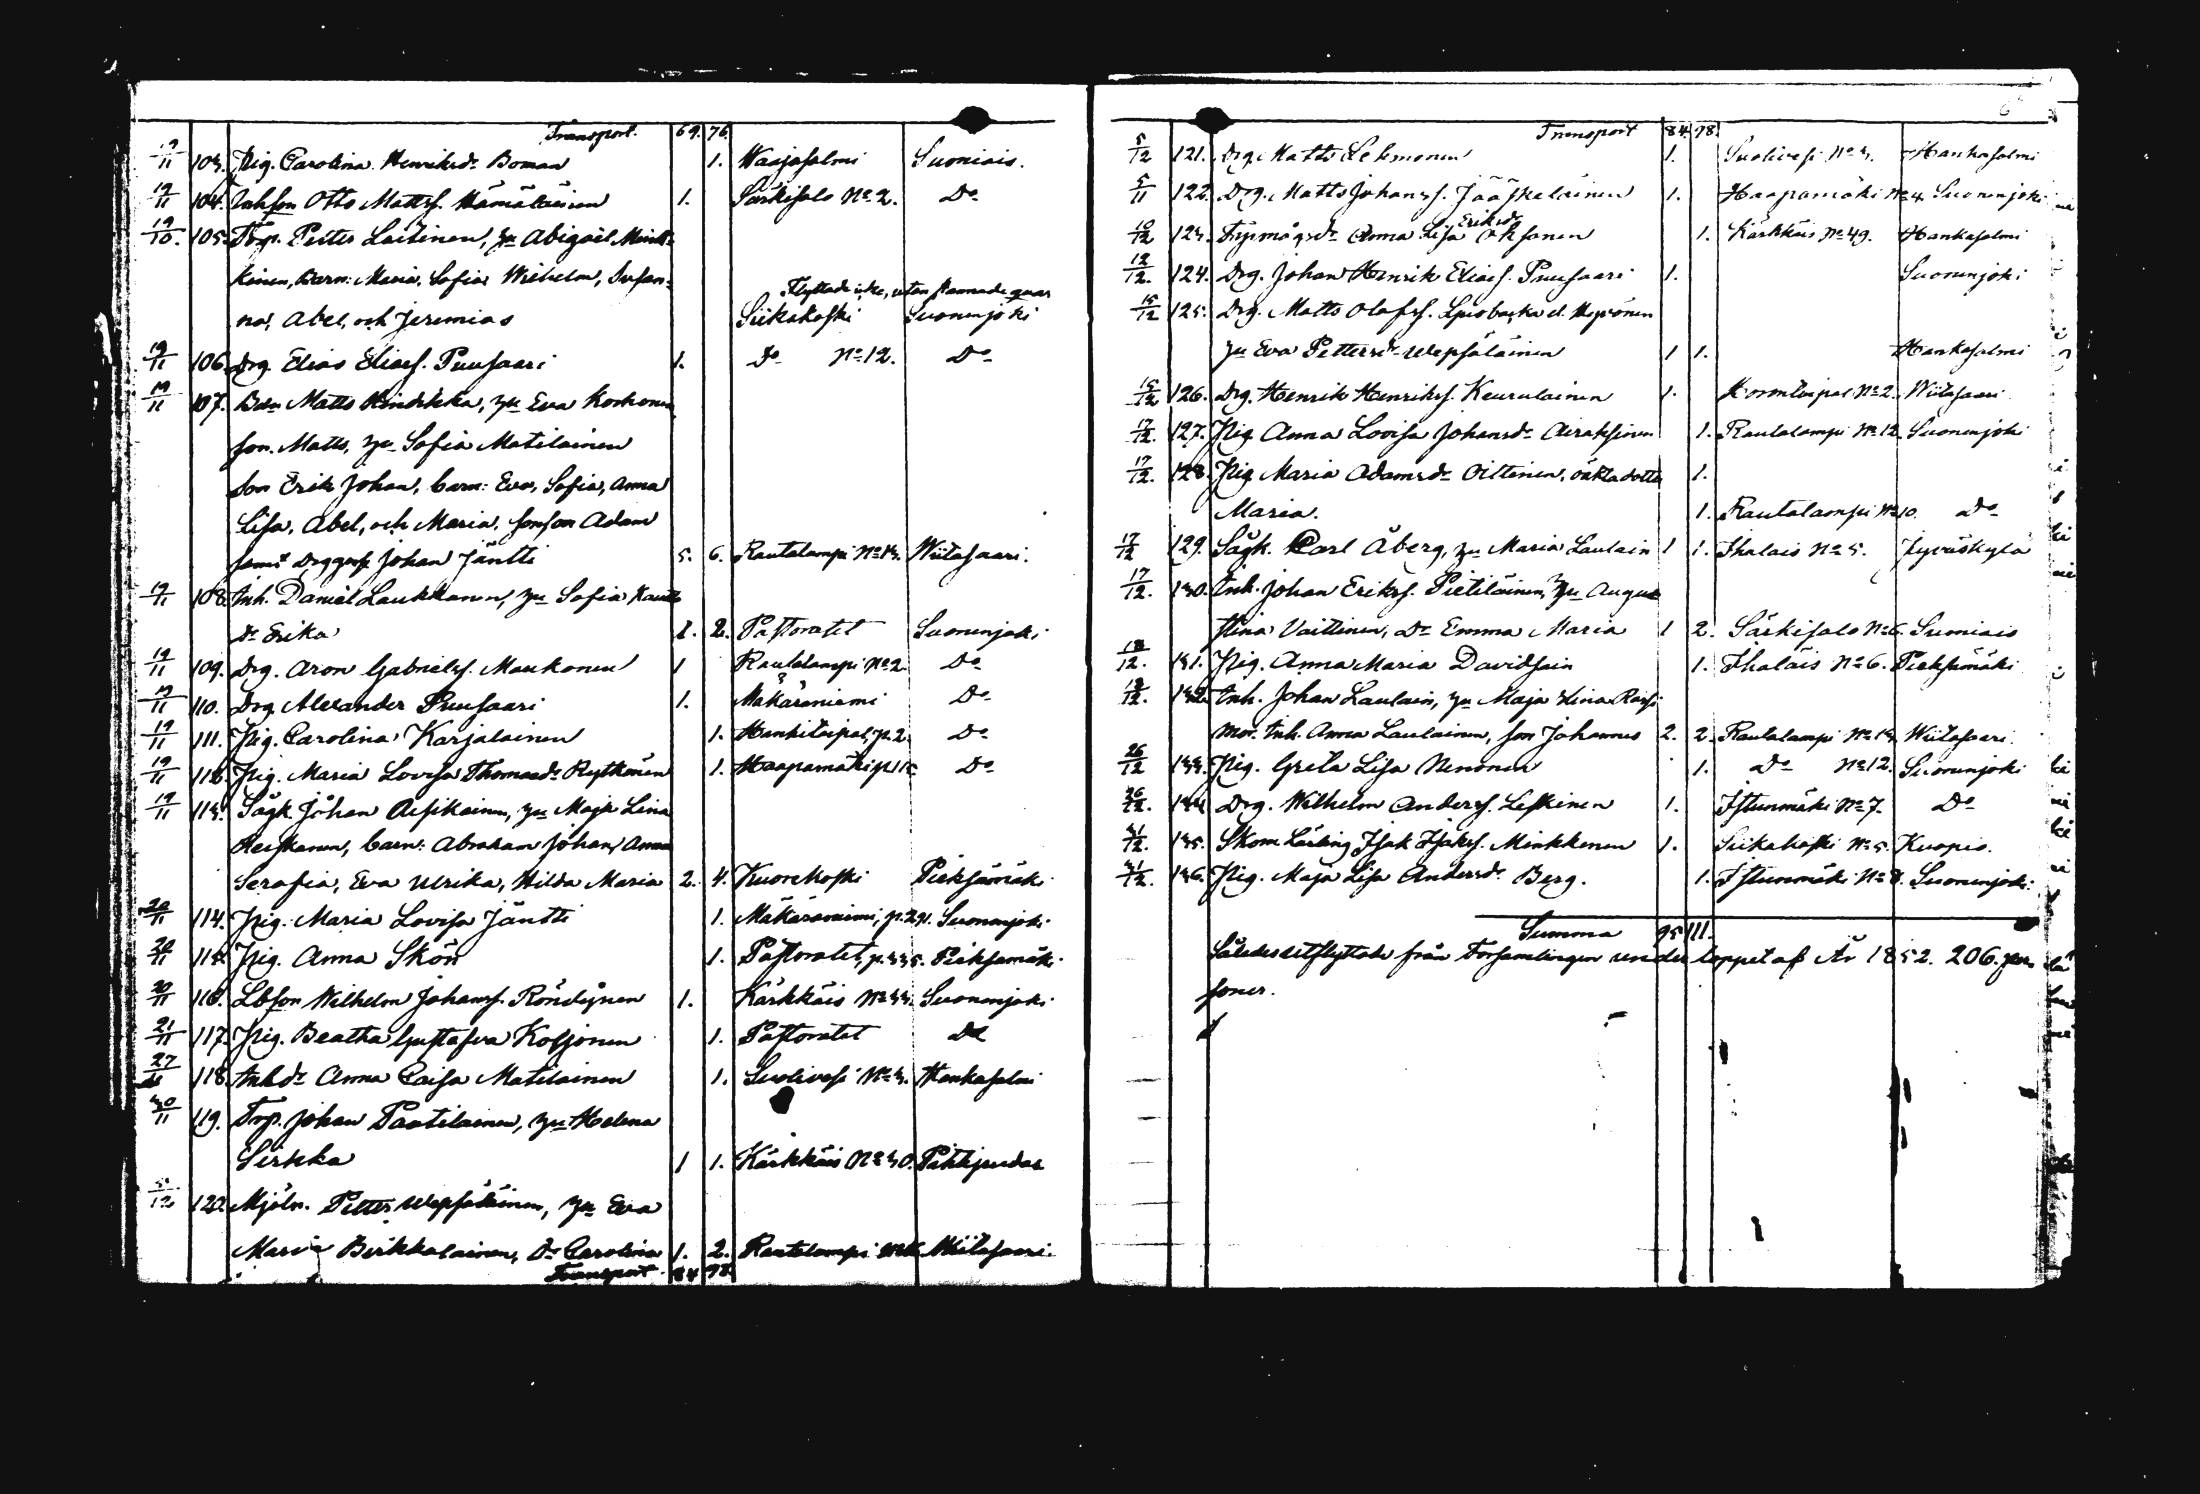 Transport. 69. 76.
19/11 103. Pig. Carolina Henriksdr Boman 1. Waajasalmi Sumiais.
19/11 104. Inhson Otto Mattsf. Hämäläinen 1. Särkisalo No 2. Do
19/10. 105. Torp. Petter Laitinen, hu Abigael Mink-
kinen, Barn: Maria, Sofia Wilhelm, Susan-
na, Abel, och Jeremias Siikakoski Suonenjoki
Flyttade icke, utan stannade qvar
19/11 106. Drg. Elias Eliasf. Puusaari 1. Do No 12. Do
19/11 107. Matts Hindrikka, hu Eva Korhonen
son. Matts, hu Sofia Matilainen
son Erik Johan, barn: Eva, Sofia, Anna
Lisa, Abel, och Maria, sonson Adam
samt Johan Jäntti 5. 6. Rautalampi No 13. Wiitasaari.
19/11 108. Inh. Daniel Laukkanen, hu Sofia
dr Erika 1. 2. Pastoratet Suonenjoki
19/11 109. Drg. Aron Gabrielsf. Maukonen 1 Rautalampi No 2 Do
19/11 110. Drg. Alexander Puusaari 1. Makäräniemi Do
19/11 111. Pig. Carolina Karjalainen 1. Hankitaipal, p. 2. Do
19/11 112. Pig. Maria Lovisa Thomasdr Rytkönen 1. Haapamäki Do
19/11 113. Sågk. Johan Aesikainen, hu Maja Lina
barn: Abraham Johan, Anna
Serafia, Eva Ulrika, Hilda Maria 2. 4. Kuorekoski Pieksämäki
20/11 114. Pig. Maria Lovisa Jäntti 1. Makäräniemi, p. 291. Suonenjoki.
20/11 115. Pig. Anna Skön 1. Pastoratet, p. 335. Pieksämäki.
20/11 116. Lbson Wilhelm Johansf. Röndynen 1. Kärkkäis No 33. Suonenjoki.
21/11 117. Pig. Beatha Gustafva Kossonen 1. Pastoratet Do
27/11 118. Inhdr Anna Caisa Matilainen 1. Suolivesi No 3. Hankasalmi
30/11 119. Torp. Johan Pautilainen, hu Helena
Sirkka 1 1. Kärkkäis No 30. Pihtipudas
5/12 120. Mjöln. Petter Wepsäläinen, hu Eva
Maria Birkkalainen, dr Carolina 1. 2. Rautalampi Wiitasaari.
Transport. 84 78.
Transport 84. 78.
5/12 121. Drg. Matts Lehmonen 1. Suolivesi No 3. Hankasalmi
5/11 122. Drg. Matts Johansf. Jääskeläinen 1. Haapamäki No 4. Suonenjoki
10/12 123. Anna Lisa Eriksdr Oksanen 1. Kärkkäis No 49. Hankasalmi
12/12. 124. Drg. Johan Henrik Eliasf. Puusaari 1. Suonenjoki
15/12 125. Drg. Matts Olofsf.
hu Eva Pettersdr Wepsäläinen 1 1. Hankasalmi
15/12 126. Drg. Henrik Henriksf. Keurulainen 1. No 2. Wiitasaari
17/12. 127. Pig. Anna Lovisa Johansdr Airaksinen 1. Rautalampi No 12. Suonenjoki
17/12. 128. Pig. Maria Adamsdr Oittinen, oäkta dotter 1.
Maria. 1. Rautalampi No 10. Do
17/12 129. Sågk. Carl Åberg, hu Maria Laulain 1 1. Ihalais No 5. Jyväskylä
17/12. 130. Inh. Johan Eriksf. Pietiläinen, hu Augu-
stina Vaittinen, Dr Emma Maria 1 2. Särkisalo No 6. Sumiais
18/12. 131. Pig. Anna Maria Davidsain 1. Ihalais No 6. Pieksämäki
19/12. 132. Inh. Johan Laulain, hu Maja Stina
Mor. Inh. Anna Laulainen, son Johannes 2. 2. Rautalampi No 13. Wiitasaari.
26/12 133. Pig. Greta Lisa Nenonen 1. Do No 12. Suonenjoki
26/12. 134. Drg. Wilhelm Andersf. Leskinen 1. Istunmäki No 7. Do
31/12. 135. Skom. Lärling Isak Isaksf. Minkkenen 1. Siikakoski No 5. Kuopio.
31/12. 136. Pig. Maja Lisa Andersdr. Berg. 1. Istunmäki No 8. Suonenjoki.
Summa 95 111.
Således utflyttade från Församlingen under loppet af År 1852. 206. per-
soner.